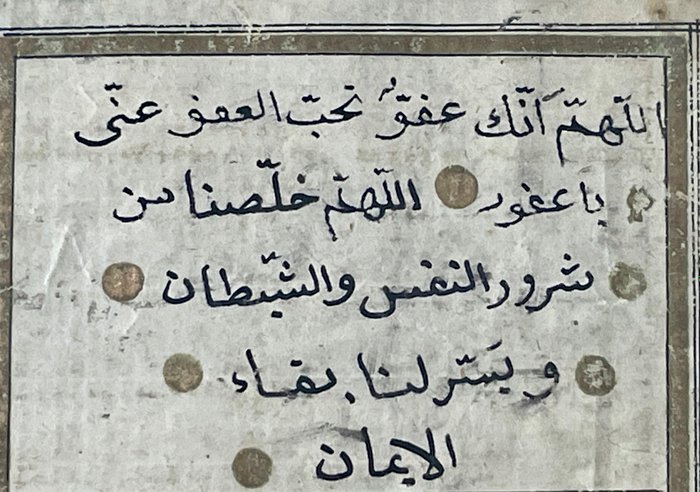 اللّهمّ انّك عفوّ تحبّ العفو عنّى
يا غفور اللّهمّ خلّصنا من
شرور النفس والشّيطان
و يسّر لنا بقاء
الايمان